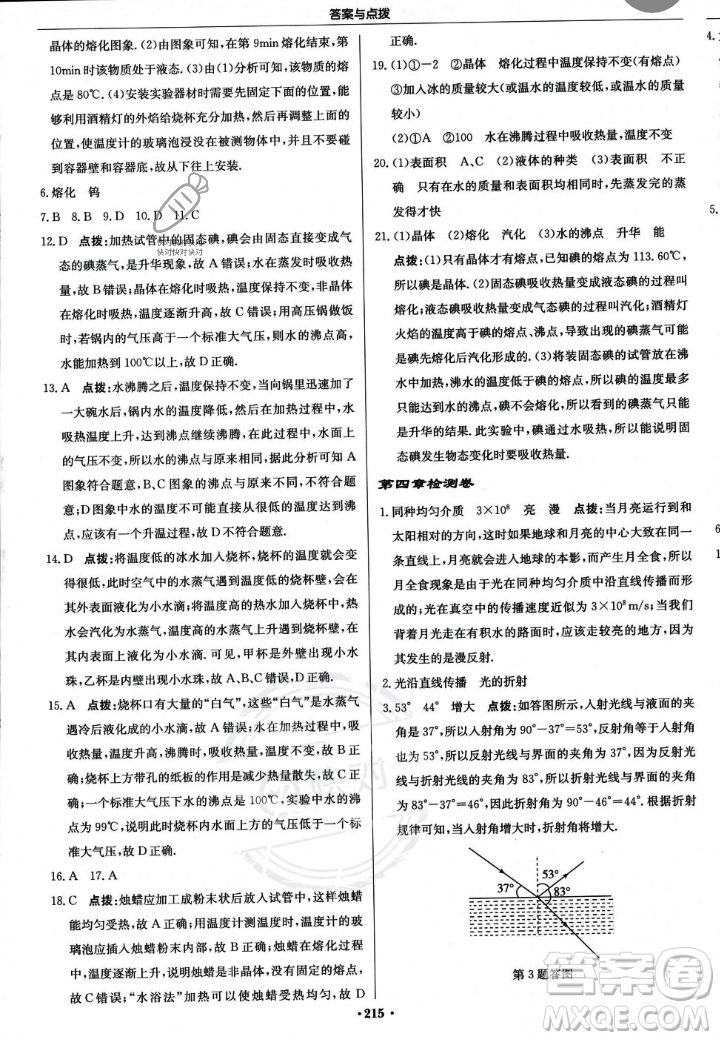 答案与点拨
晶体的熔化图象. (2)由图象可知，在第 9min 熔化结束，
10min 时该物质处于液态. (3)由分析可知，该物质的熔
点是 80℃. (4)安装实验器材时要先固定下面的位置，能
够利用酒精灯的外焰给烧杯充分加热，再固定上面的
位置，使温度计的玻璃泡浸没在被测物体中，并且不碰
到容器壁和容器底，故从下往上安装.
6. 熔化 钨
7. B 8. B 9. D 10. D 11. C
12. D 点拨：加热试管中的固态碘，碘会由固态直接变成气
态的碘蒸气，是升华现象，故 A 错误；水在沸腾时吸收热
量，温度不变，故 B 错误；晶体在熔化时吸热，温度不变，非
晶体在熔化时吸热，温度逐渐升高，故 C 错误；用高压锅做饭
时，若锅内的气压高于一个标准大气压，则水的沸点高，
水能加热到 100℃以上，故 D 正确.
13. A 点拨：水沸腾之后，温度保持不变，当向锅里迅速加了
一大碗水后，锅内水的温度降低，然后在加热过程中，水
吸热温度上升，达到沸点继续沸腾，在此过程中，水面上
的气压不变，所以水的沸点不变. 根据此分析可知 A
图象符合题意，B、C 图象不符合题意. 由于加水后，水
的温度会立即下降，所以不可能有一段时间处于水的沸
点，应该有一个升温过程，故 D 不符合题意.
14. D 点拨：将温度低的冰水加入烧杯，烧杯的温度就会变得
很低，此时空气中的水蒸气遇到温度低的烧杯壁，就会在
其外表面液化成小水滴；将温度高的热水加入烧杯，热水
会变成水蒸气，温度高的水蒸气上升，遇到温度低的烧杯
内壁，就会液化成小水滴. 可见，甲杯是外壁出现小水
珠，乙杯是内壁出现小水珠. 故 A、B、C 错误；D 正确.
15. A 点拨：烧杯口有大量的“白气”，这些“白气”是水蒸气
遇冷后液化成的小水滴，故 A 正确；水沸腾前，吸收热量，
吸收热量，温度升高，沸腾时，吸收热量，温度不变，故 B
错误；烧杯上方带孔的纸板的作用是减少热量散失，故 C
错误；一个标准大气压下水的沸点是 100℃，实验中水的沸
点为 99℃，说明此时烧杯内水面上方的气压小于一个标准大
气压，故 D 错误.
16. A 17. A
18. C 点拨：烛蜡应加工成粉末状后放入试管中，这样烛蜡
能均匀受热，故 A 正确；用温度计测温度时，温度计的玻
璃泡应插入烛蜡粉末内部，故 B 正确；烛蜡在熔化过程
中，温度逐渐升高，说明烛蜡是非晶体，没有固定的熔点，
故 C 错误；“水浴法”加热可以使烛蜡受热均匀，故 D
正确.
19. (1)①－2 ②晶体 熔化过程中温度保持不变(有熔点)
③加入冰的质量较大(或温水的温度较低，或温水的质量
较小)
(2)①A ②100 水在沸腾过程中吸收热量，温度不变
20. (1)表面积 A、C (2)液体的种类 (3)表面积 不正
确 只有在水的质量和表面积相同时，先蒸发完的蒸
发得才快
21. (1)晶体 (2)熔化 汽化 (3)水的沸点 升华 能
点拨：(1)只有晶体才有熔点，已知碘的熔点为 113.60℃，
所以碘是晶体. (2)固态碘吸收热量变成液态碘的过程叫
熔化；液态碘吸收热量变成气态碘的过程叫汽化；酒精灯
火焰的温度高于碘的熔点、沸点，所以碘蒸气的出现可能
是碘先熔化后汽化形成的. (3)将装固态碘的试管放在沸
水中，沸水的温度低于碘的熔点，所以固态碘不可能熔化，
所以利用水的沸点，碘不会熔化，看到的碘蒸气只能
是升华的结果. 此实验中，碘不断升华，所以能说明固态
碘发生物态变化时要吸收热量.
第四章检测卷
1. 同种均匀介质 3×10⁸ 亮 漫 点拨：当月亮转到和
太阳相对的方向，这时如果地球和月亮的中心大致在同一
条直线上，月亮就会进入地球的本影，而产生月全食，月
全食现象是由于光在同种均匀介质中沿直线传播形成
的；光在真空中的传播速度近似为 3×10⁸ m/s；当我们
背着月光走在有积水的路面时，应避开较暗的地面，因为
其发生的是漫反射.
2. 光沿直线传播 光的折射
3. 53° 44° 增大 点拨：如答图所示，入射光线与液面的夹
角是 37°，所以入射角为 90°－37°＝53°，反射角等于入射角，
也为 53°，所以反射光线与界面的夹角为 37°，所以反射
光线与折射光线的夹角为 37°＋83°＝120°，折射光线与
界面的夹角为 83°－37°＝46°，折射角为 90°－46°＝44°. 根据光的折射
规律可知，当入射角增大时，折射角将增大.
37° 53° 83°
第 3 题答图
· 215 ·
答案卷
MXEQE.COM